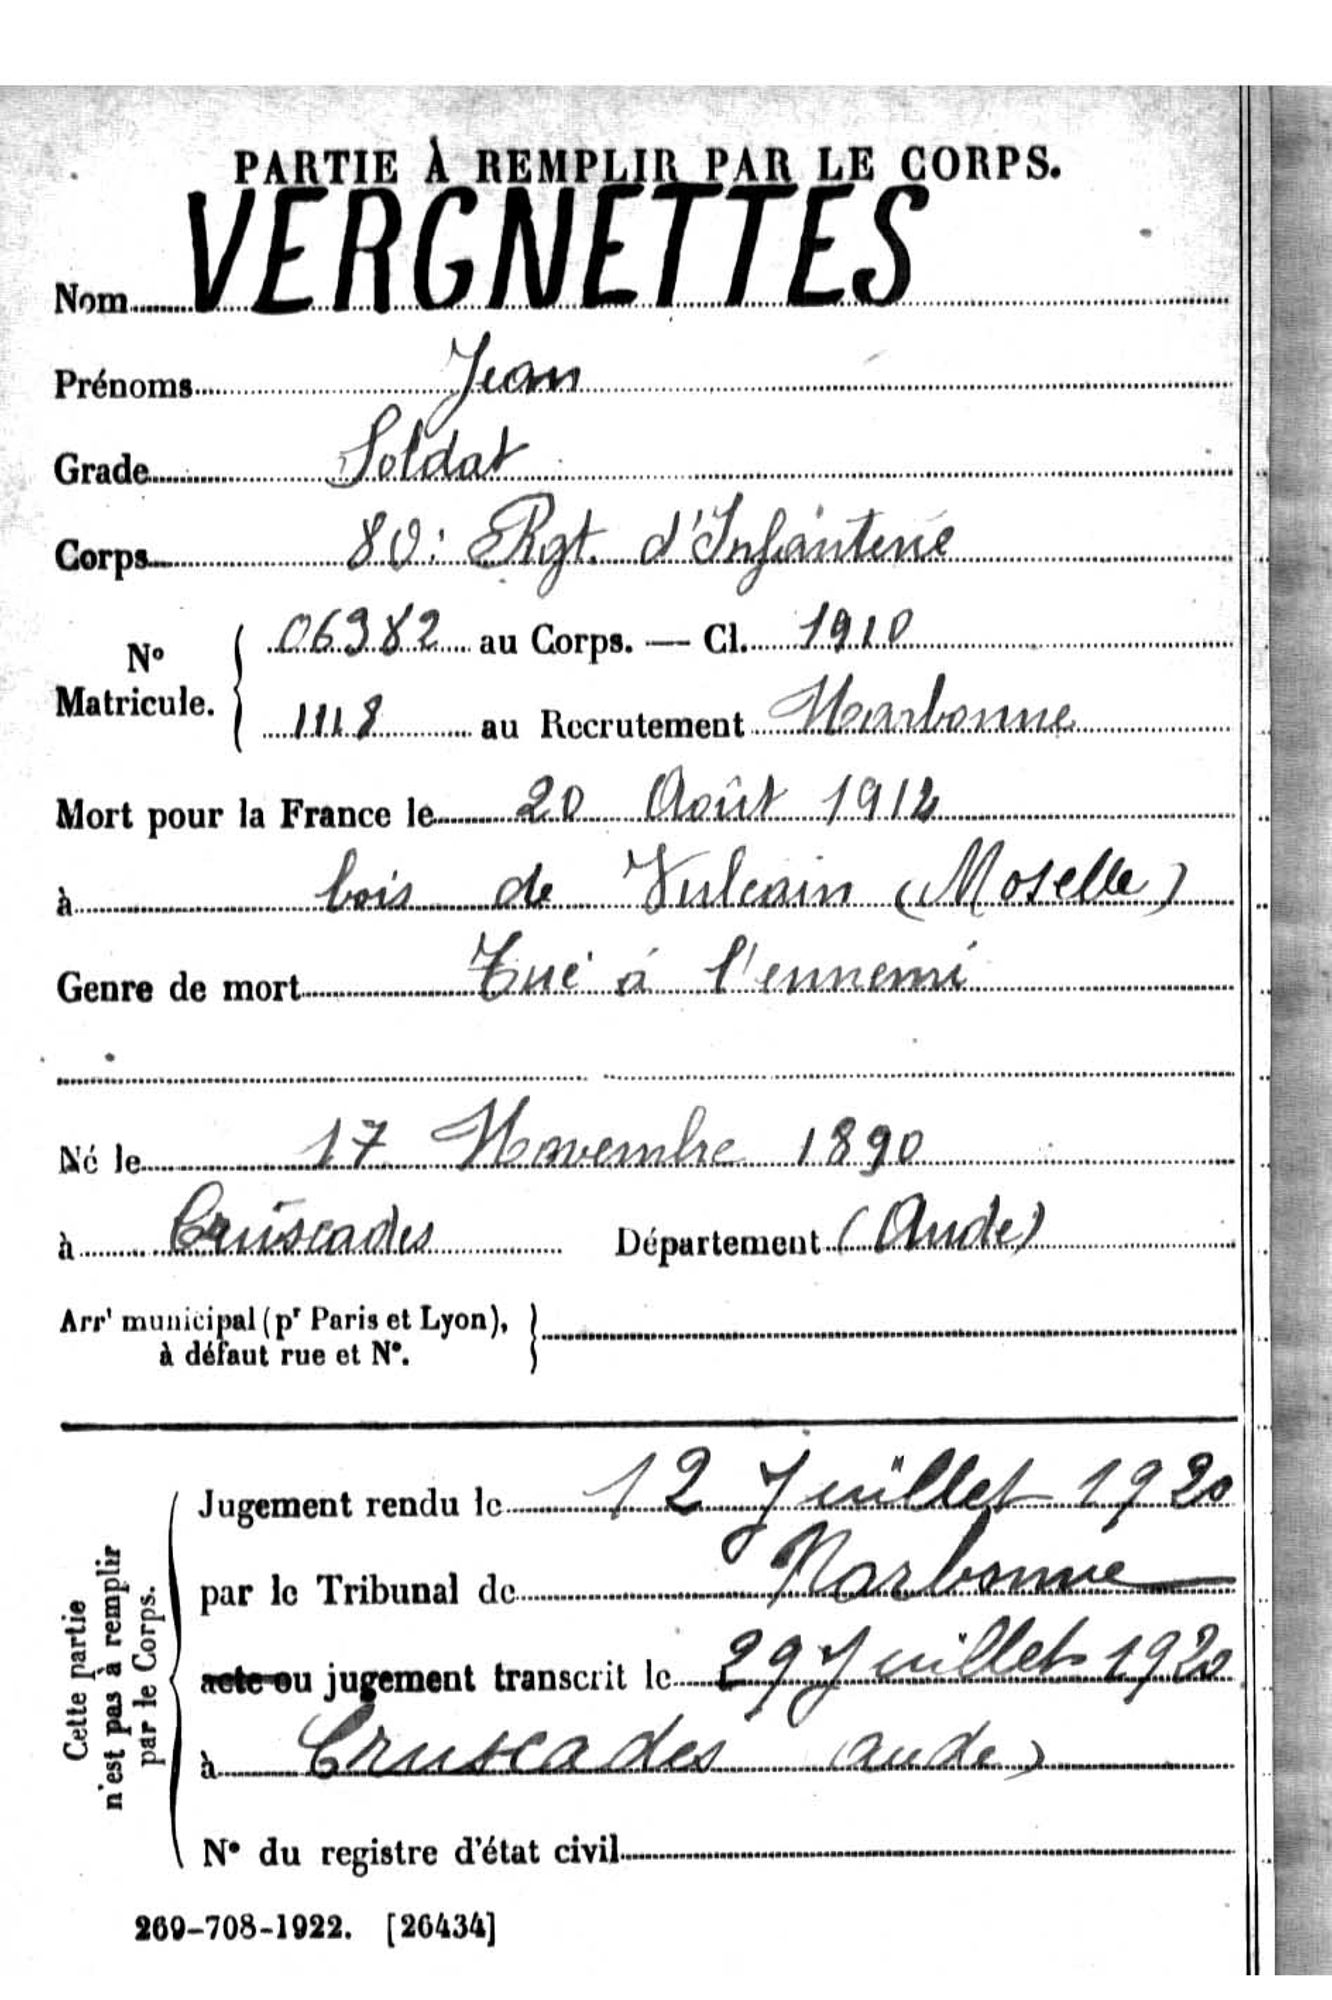 PARTIE À REMPLIR PAR LE CORPS.
Nom VERGNETTES
Prénoms Jean
Grade Soldat
Corps 80: Rgt. d'Infanterie
N° Matricule. { 06382 au Corps. — Cl. 1910
1118 au Recrutement Narbonne
Mort pour la France le 20 Août 1914
à bois de Vulcain (Moselle)
Genre de mort Tué à l'ennemi
Né le 17 Novembre 1890
à Cruscades Département (Aude)
Arr' municipal (pr Paris et Lyon), }
à défaut rue et N°.
Cette partie
n'est pas à remplir
par le Corps.
Jugement rendu le 12 Juillet 1920
par le Tribunal de Narbonne
acte ou jugement transcrit le 29 Juillet 1920
à Cruscades (aude)
N° du registre d'état civil
269-708-1922. [26434]